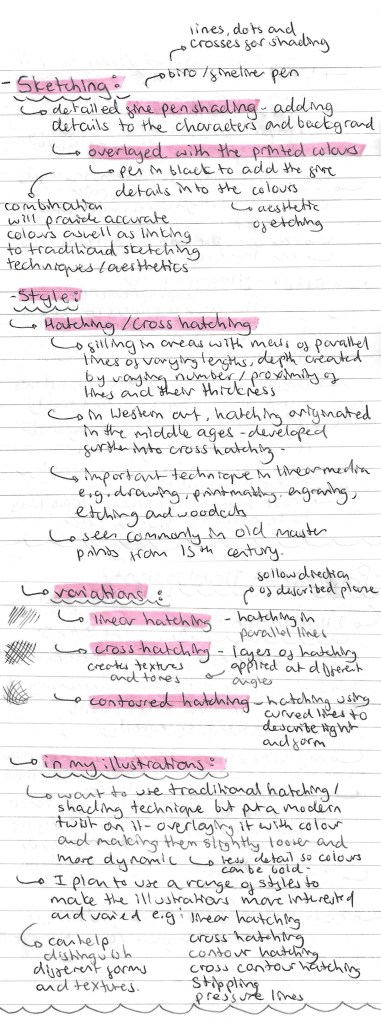 lines, dots and
crosses for shading
- Sketching:
biro / fineline pen
detailed fine pen shading - adding
details to the characters and backgrond
overlayed with the printed colours
pen in black to add the fine
details into the colours
aesthetic
of etching
combination
will provide accurate
colours aswell as linking
to traditional sketching
techniques/aesthetics
- Style:
Hatching / Cross hatching
filling in areas with mass of parallel
lines of varying lengths, depth created
by varying number / proximity of
lines and their thickness
in Western art, hatching originated
in the middle ages - developed
further into cross hatching.
important technique in linear media
e.g. drawing, printmaking, engraving,
etching and woodcuts
seen commonly in old master
prints from 15th century.
variations:
follow direction
of described plane
linear hatching - hatching in
parallel lines
cross hatching - layers of hatching
applied at different
angles
creates textures
and tones
contoured hatching - hatching using
curved lines to
describe light
and form
in my illustrations:
want to use traditional hatching /
shading technique but put a modern
twist on it - overlaying it with colour
and making them slightly looser and
more dynamic
less detail so colours
can be bold.
I plan to use a range of styles to
make the illustrations more interested
and varied e.g: linear hatching
cross hatching
contour hatching
cross contour hatching
Stippling
pressure lines
can help
distinguish
different forms
and textures.